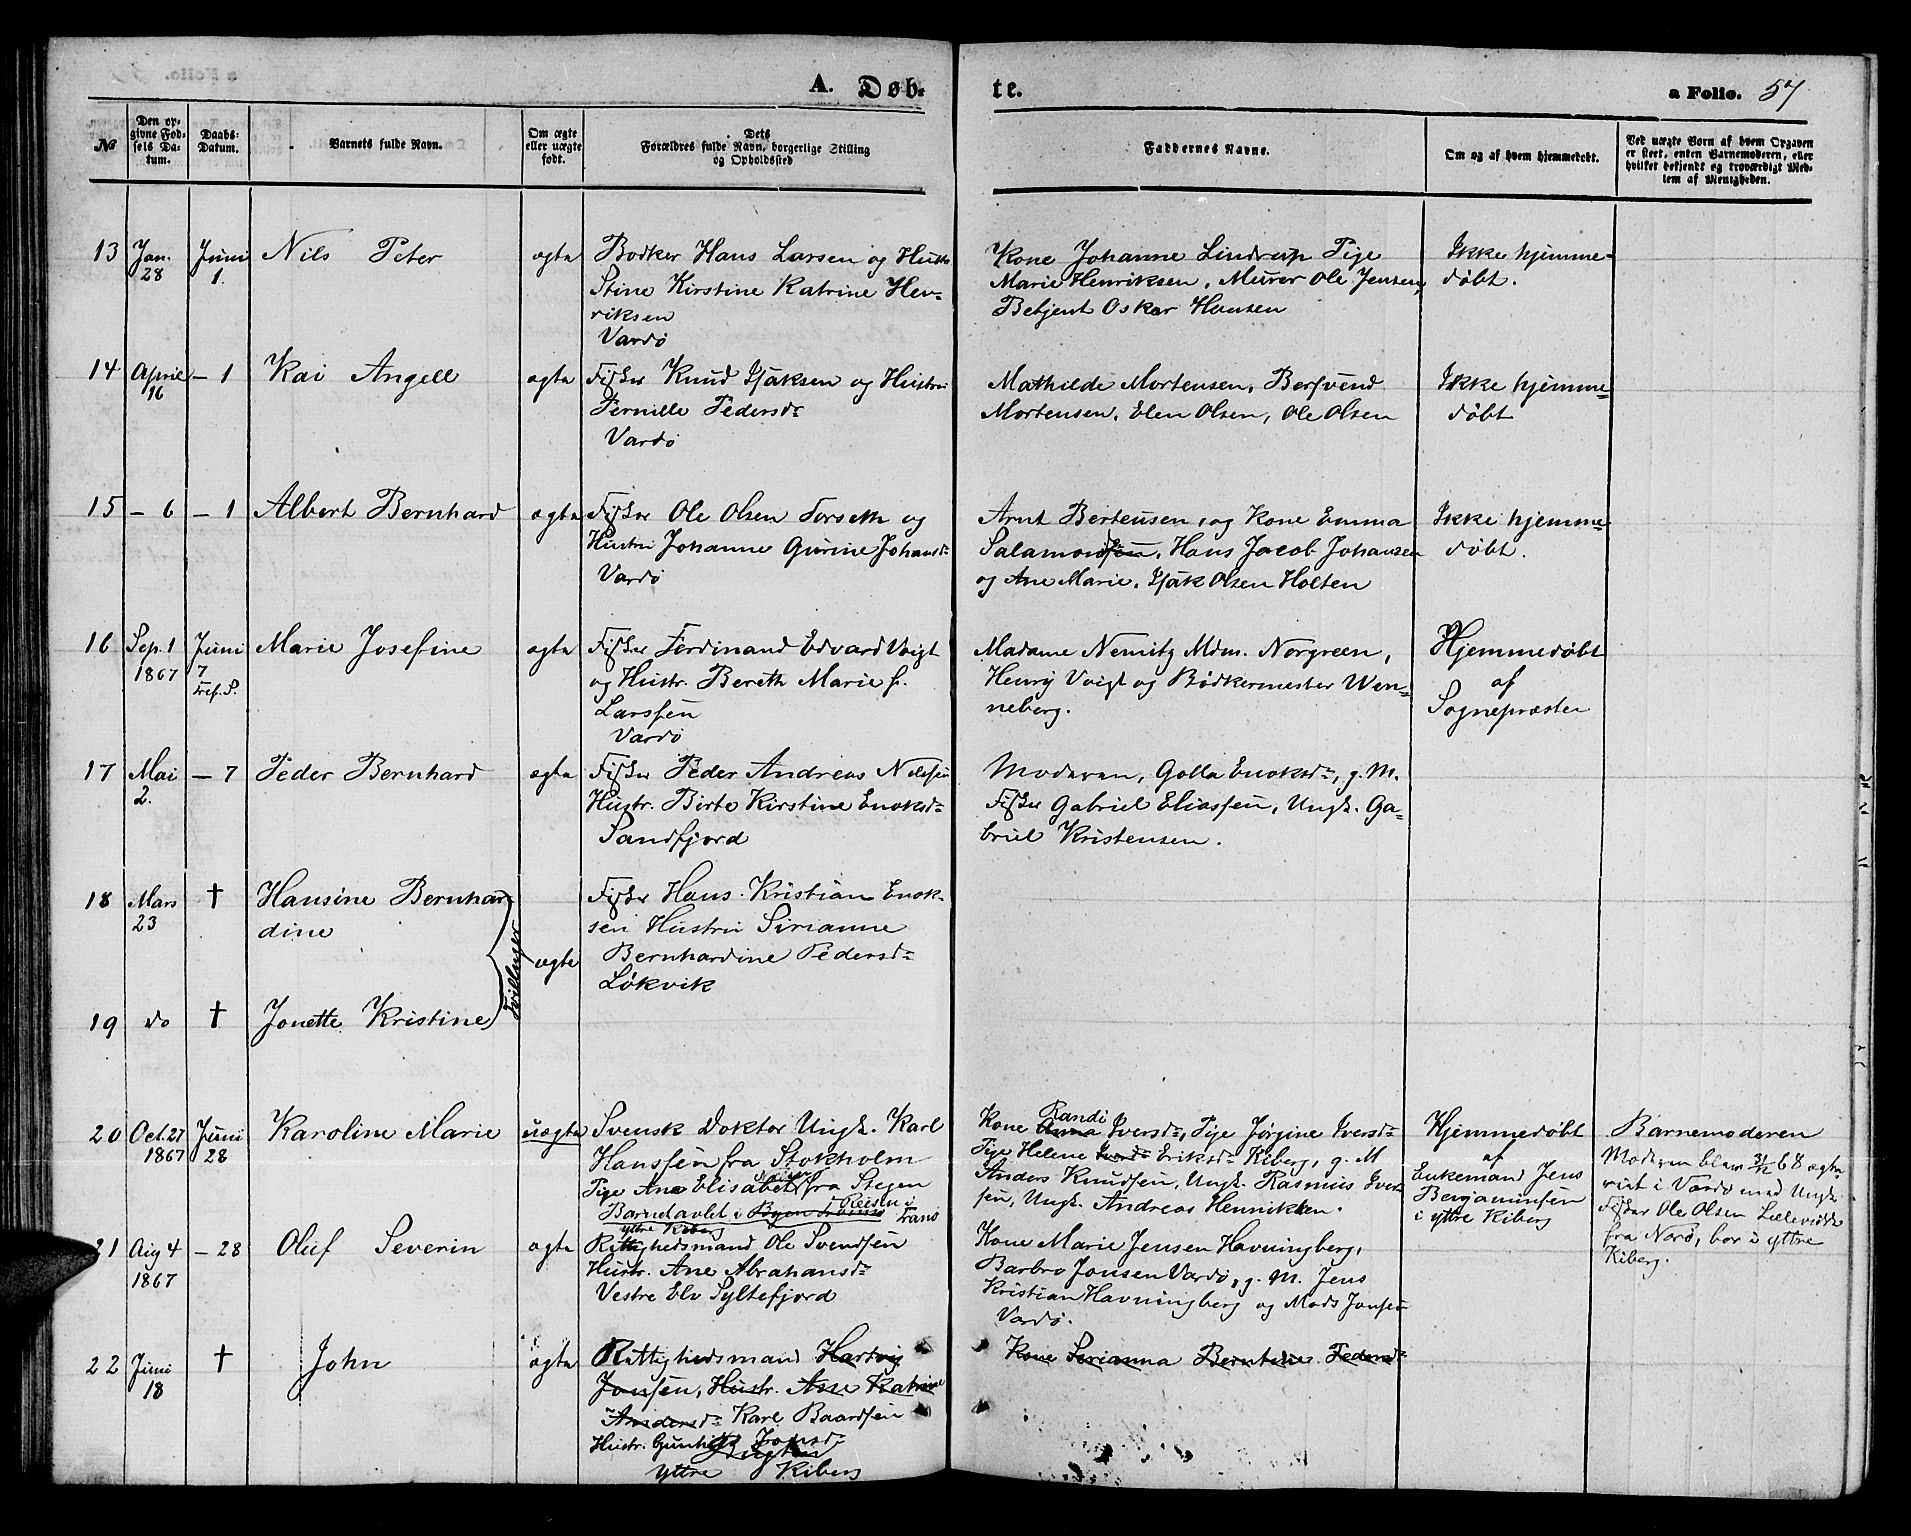 A. Døb-
te.
a Folio. 57
№
Den op-
givne Fød-
sels Da-
tum.
Daabs-
Datum.
Barnets fulde Navn.
Om ægte
eller uægte
født.
Dets
Forældres fulde Navn, borgerlige Stilling
og Opholdssted
Faddernes Navne.
Om og af hvem hjemmedøbt.
Ved uægte Børn af hvem Opgaven
er skeet, enten Barnemoderen, eller
hvilket bekjendt og troværdigt Med-
lem af Menigheden.
13 Jan. 28 Juni 1. Nils Peter ægte
Bødker Hans Larsen og Hustr
Stine Kirstine Katrine Hen-
riksen
Vardø
Kone Johanne Lindrup Pige
Marie Henriksen, Murer Ole Jensen,
Betjent Oskar Hansen
Ikke hjemme-
døbt.
14 April 16 – 1 Kai Angell ægte
Fisker Knud Isaksen og Hustru
Pernille Pedersd=
Vardø
Mathilde Mortensen, Bersvend
Mortensen, Elen Olsen, Ole Olsen
Ikke hjemme=
døbt
15 – 6 – 1 Albert Bernhard ægte
Fisker Ole Olsen Forseth og
Hustru Johanne Gurine Johansd=
Vardø
Arnt Berteusen, og Kone Emma
Salamonsen, Hans Jacob Johansen
og Ane Marie, Isak Olsen Holten
Ikke hjemme=
døbt.
16 Sep. 1 1867 Juni 7 Marie Josefine ægte
Fisker Ferdinand Edvard Voigt
og Hustr. Bereth Marie f.
Larssen
Vardø
Madame Nemitz Mdm. Norgreen,
Henry Voigt og Bødkermester Wen-
neberg.
Hjemmedøbt
af
Sognepræsten
17 Mai 2. – 7 Peder Bernhard ægte
Fisker Peder Andreas Nilssen
Hustr. Birte Kirstine Enoksd=
Sandfjord
Moderen, Golla Enoksd=, g. M.
Fisker Gabriel Eliassen, Ungk. Ga-
briel Kristensen.
18 Mars 23 † Hansine Bernhar-
dine
Tvillinger
ægte
Fisker Hans Kristian Enok-
sen Hustru Sirianne
Bernhardine Pedersd=
Løkvik
19 do † Jonette Kristine
20 Oct. 27 1867 Juni 28 Karoline Marie uægte
Svensk Doktor Ungk. Karl
Hanssen fra Stokholm
Pige Ane Elisabet fra Stegen
Barnet avlet i Reisen i Trans
yttre Kiberg
Kone Randi Iversd=, Pige Jørgine Iversd=
Pige Helene Eriksd= Kiberg, g. M
Anders Knudsen, Ungk. Rasmus Iver-
sen, Ungk. Andreas Henriksen.
Hjemmedøbt
af
Enkemand Jens
Benjaminsen
i yttre Kiberg
Barnemoderen
Moderen blev 31/12 68 ægte
viet i Vardø med Ungk
Fisker Ole Olsen
fra Norø, bor i yttre
Kiberg.
21 Aug 4 1867 – 28 Oluf Severin ægte
Rettighedsmand Ole Svendsen
Hustr. Ane Abrahamsd=
Vestre Elv Syltefjord
Kone Marie Jensen Havningberg,
Barbro Jonsen Vardø, g. M. Jens
Kristian Havningberg og Mads Jonsen
Vardø.
22 Juni 18 † John ægte
Rettighedsmand Hartvig
Jonsen, Hustr. Ane Katrine
Andersd= Karl Baardsen
Hustr. Gunhild Jonsd=
yttre Kiberg
Kone Serianna Berntine Pedersd=